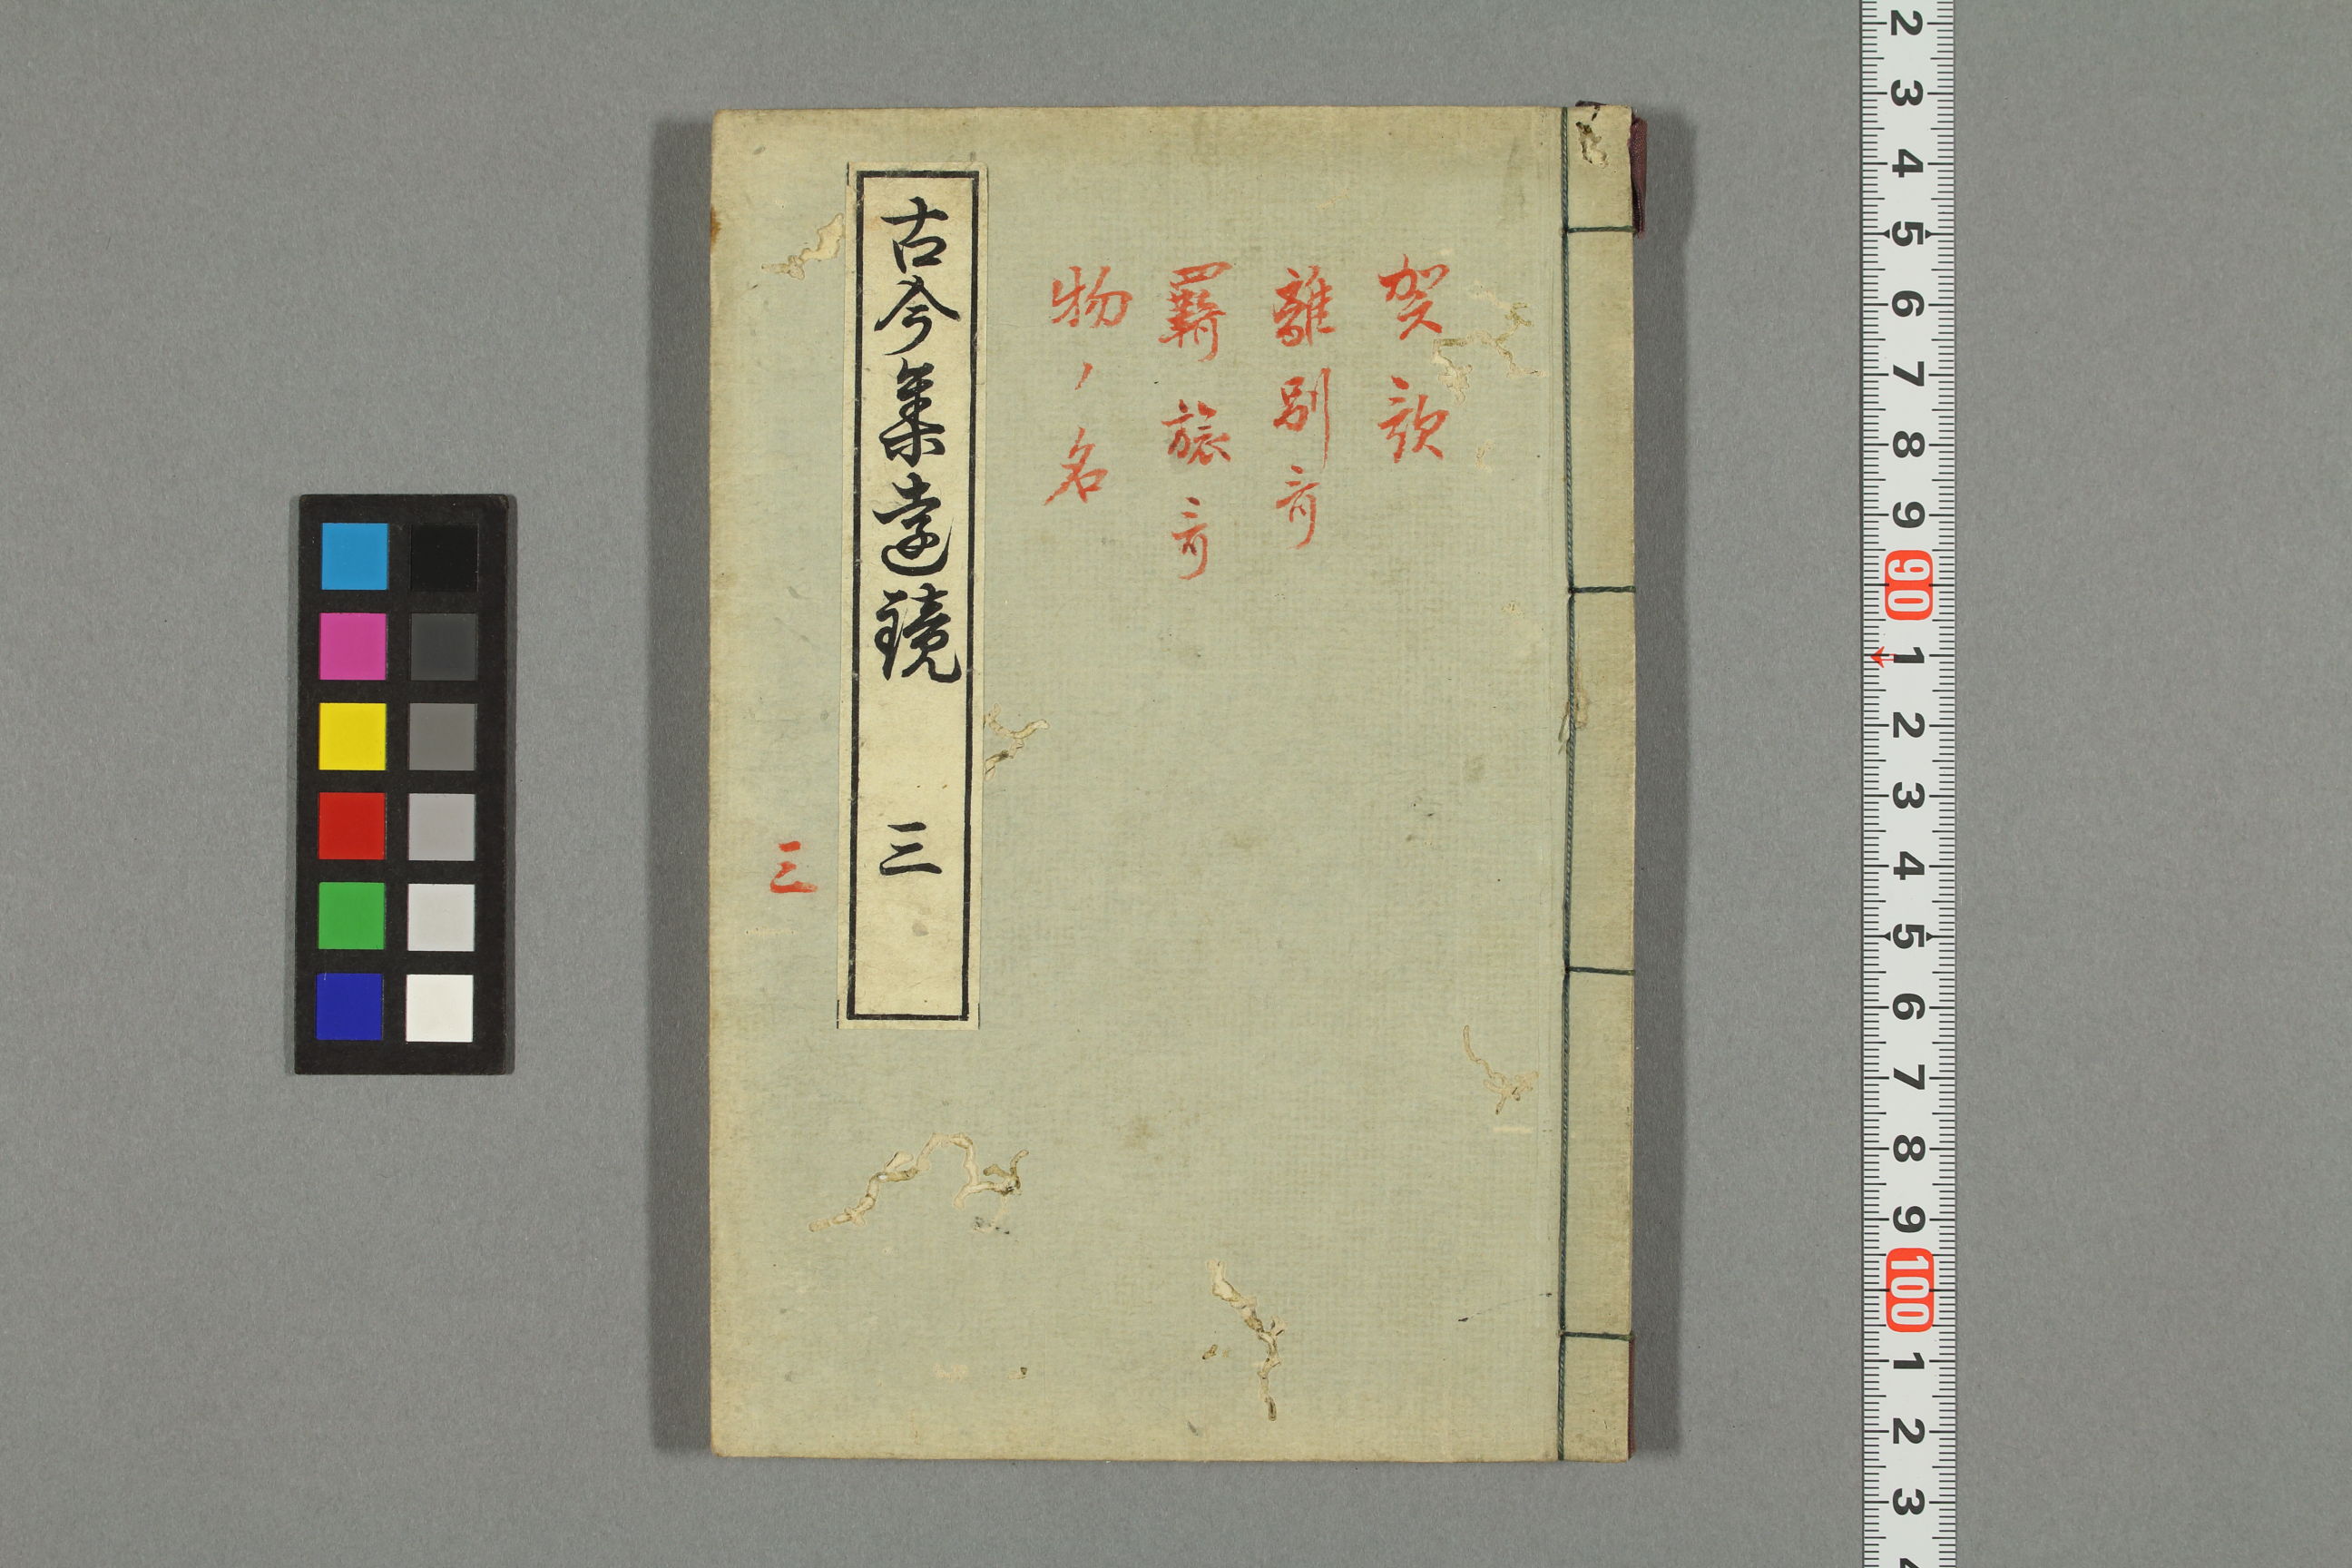 賀歌
離別哥
羇旅哥
物ノ名
古今集遠鏡 三
三
2 3 4 5 6 7 8 9 90 1 2 3 4 5 6 7 8 9 100 1 2 3